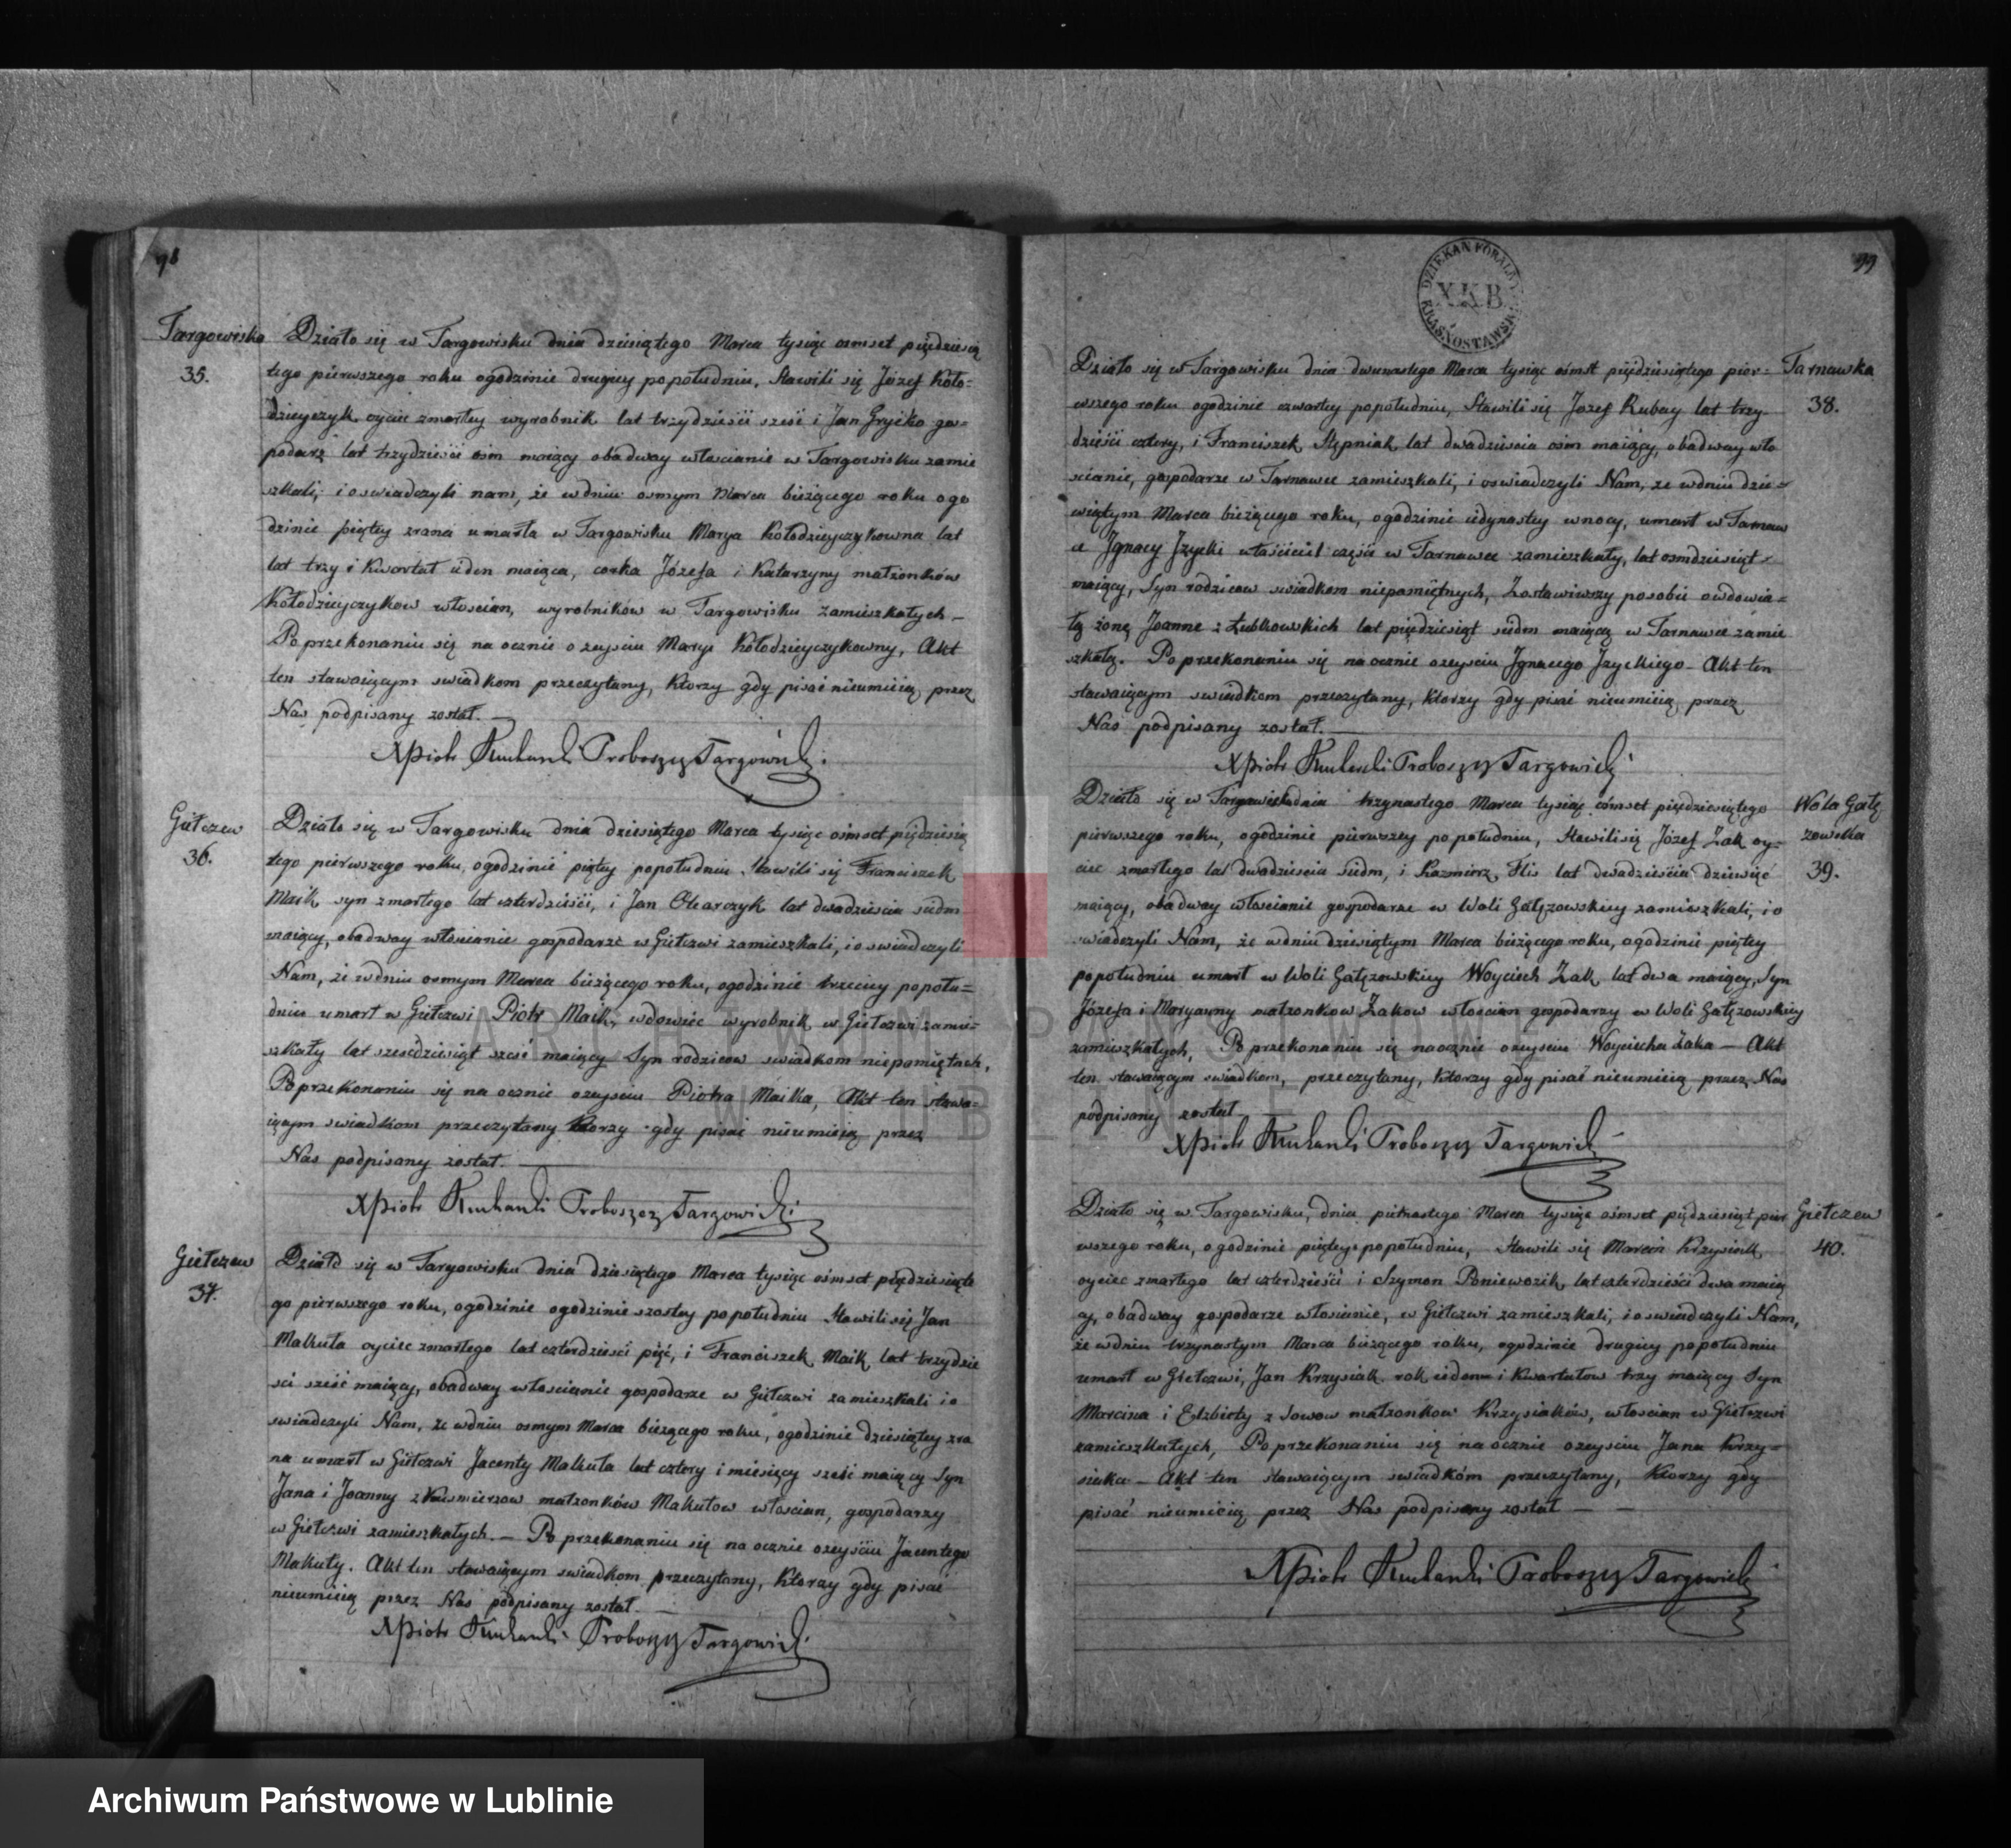 98
Targowisko
35.
Działo się w Targowisku dnia dziesiątego Marca tysiąc osmset pięćdziesią
tego pierwszego roku ogodzinie drugiey popołudniu, Stawili się Józef Koło-
dzieyczyk oyciec zmarłey wyrobnik lat trzydzieści sześć i Jan Gryćko gos-
podarz lat trzydzieści ośm maiący obadway włościanie w Targowisku zamie
szkali, i oswiadczyli nam, że wdniu osmym Marca bieżącego roku ogo
dzinie piątey zrana umarła w Targowisku Marya Kołodzieyczykowna lat
lat trzy i Kwartał ieden maiąca, corka Józefa i Katarzyny małzonków
Kołodzieyczykow włoscian, wyrobników w Targowisku zamieszkałych –
Po przekonaniu się na ocznie o zeysciu Maryi Kołodzieyczykowny, Akt
ten stawaiącym swiadkom przeczytany, Ktorzy gdy pisać nieumieią przez
Nas podpisany został. —
XPiotr Proboszcz Targowicki
Giełczew
36.
Działo się w Targowisku dnia dziesiątego Marca tysiąc ośmset pięćdziesią
tego pierwszego roku, ogodzinie piątey popołudniu Stawili się Franciszek
Maik syn zmarłego lat czterdzieści, i Jan Olearczyk lat dwadziescia siedm
maiący, obadway włoscianie gospodarze w Giełczwi zamieszkali, i oswiadczyli
Nam, że wdniu osmym Marca bieżącego roku, ogodzinie trzeciey popołu=
dniu umarł w Giełczwi Piotr Maik, wdowiec wyrobnik w Giełczwi zamie-
szkały lat sześćdziesiąt sześć maiący Syn rodzicow swiadkom niepamiętnych,
Po przekonaniu się na ocznie ozeysciu Piotra Maika, Akt ten stawa-
iącym swiadkom przeczytany Ktorzy gdy pisać nieumieią przez
Nas podpisany został. —
XPiotr Proboszcz Targowicki
Giełczew
37.
Działo się w Targowisku dnia dziesiątego Marca tysiąc ośmset pięćdziesiąte
go pierwszego roku, ogodzinie ogodzinie szostey popołudniu Stawili się Jan
Makuła oyciec zmarłego lat czterdzieści pięć, i Franciszek Maik lat trzydzie
sci sześć maiący, obadway włoscianie gospodarze w Giełczwi zamieszkali i o
swiadczyli Nam, że wdniu osmym Marca bieżącego roku, ogodzinie dziesiątey zra
na umarł w Giełczwi Jacenty Makuła lat cztery i miesięcy sześć maiący Syn
Jana i Joanny z małzonków Makułow włoscian, gospodarzy
w Giełczwi zamieszkałych. — Po przekonaniu się na ocznie ozeyściu Jacentego
Makuły. Akt ten stawaiącym swiadkom przeczytany, Ktorzy gdy pisać
nieumieią przez Nas podpisany został. —
XPiotr Proboszcz Targowicki
99
DZIEKAN FORALNY
X.K.B
KRASNOSTAWSKI
Tarnawka
38.
Działo się w Targowisku dnia dwunastego Marca tysiąc ośmst pięćdziesiątego pier-
wszego roku ogodzinie czwartey popołudniu, Stawili się Jozef Rubay lat trzy-
dzieści cztery, i Franciszek Stępniak lat dwadziescia ośm maiący, obadway wło
scianie, gospodarze w Tarnawce zamieszkali, i oswiadczyli Nam, ze wdniu dzie-
wiątym Marca bieżącego roku, ogodzinie iedynastey wnocy, umarł w Tarnaw
ce Jgnacy Jzycki właściciel części w Tarnawce zamieszkały, lat osmdziesiąt
maiący, Syn rodzicow swiadkom niepamiętnych, Zostawiwszy posobie owdowia=
łą żonę Joannę z Łubkowskich lat pięćdziesiąt siedm maiącą w Tarnawce zamie
szkałą. Po przekonaniu się na ocznie ozeysciu Jgnacego Jzyckiego – Akt ten
stawaiącym swiadkom przeczytany, Ktorzy gdy pisać nieumieią przez
Nas podpisany został. —
XPiotr Proboszcz Targowicki
Wola Gałę
zowska
39.
Działo się w Targowisku dnia trzynastego Marca tysiąc ośmset pięćdziesiątego
pierwszego roku, ogodzinie pierwszey popołudniu, Stawili się Józef Żak oy-
ciec zmarłego lat dwadziescia siedm, i Kazmierz Flis lat dwadzieścia dziewięć
maiący, obadway włoscianie gospodarze w Woli Gałęzowskiey zamieszkali, i o
swiadczyli Nam, że wdniu dziesiątym Marca bieżącego roku, ogodzinie piątey
popołudniu umarł w Woli Gałęzowskiey Woyciech Żak, lat dwa maiący, Syn
Józefa i Maryanny małzonkow Żakow włoscian gospodarzy w Woli Gałęzowskiey
zamieszkałych, Po przekonaniu się naocznie ozeysciu Woyciecha Żaka — Akt
ten stawaiącym swiadkom, przeczytany, Ktorzy gdy pisać nieumieią przez Nas
podpisany został
XPiotr Proboszcz Targowicki
Giełczew
40.
Działo się w Targowisku, dnia piętnastego Marca tysiąc ośmset pięćdziesiąt pier
wszego roku, ogodzinie piątey popołudniu, Stawili się Marcin Krzysiak
oyciec zmarłego lat czterdzieści i Szymon Poniewozik, lat czterdzieści dwa maią
cy, obadway gospodarze włoscianie, w Giełczwi zamieszkali, i oswiadczyli Nam,
że wdniu trzynastym Marca bieżącego roku, ogodzinie drugiey popołudniu
umarł w Giełczwi, Jan Krzysiak rok ieden i Kwartałow trzy maiący Syn
Marcina i Elzbiety z Sowow małzonkow Krzysiaków, włoscian w Giełczwi
zamieszkałych, Po przekonaniu się na ocznie ozeysciu Jana Krzy-
siaka – Akt ten stawaiącym swiadkóm przeczytany, Ktorzy gdy
pisać nieumieią przez Nas podpisany został — —
XPiotr Proboszcz Targowicki
ARCHIWUM PAŃSTWOWE
W LUBLINIE
Archiwum Państwowe w Lublinie